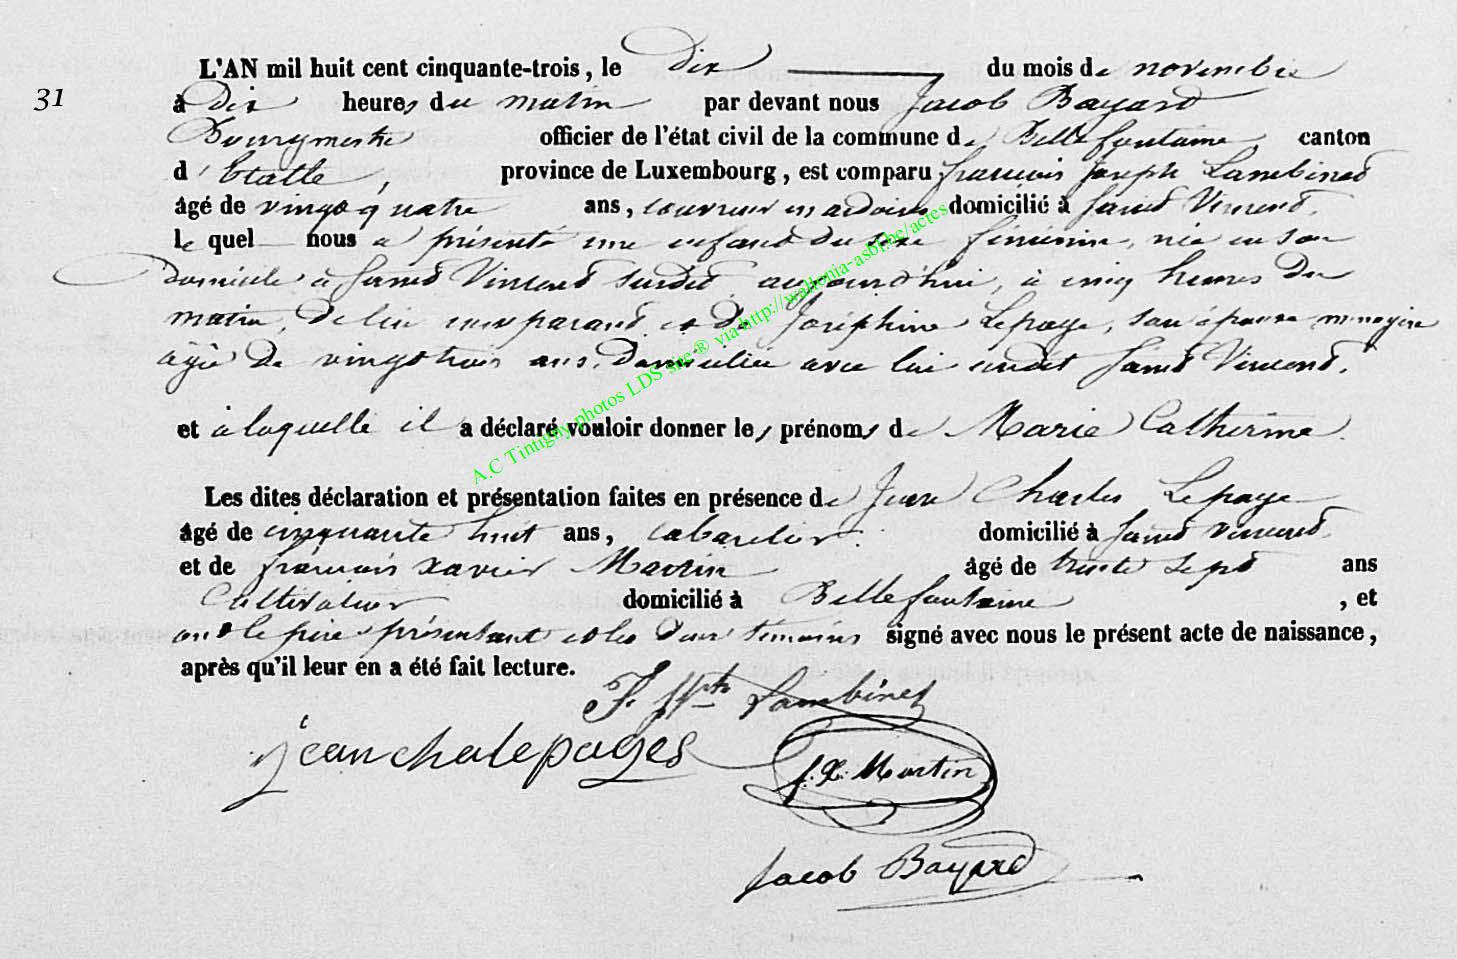 L'AN mil huit cent cinquante-trois, le dix du mois de novembre
31
à Dix heures du matin par devant nous Jacob Bayard
Bourgmestre officier de l'état civil de la commune de Bellefontaine canton
d'Etalle, province de Luxembourg, est comparu françois Joseph Lambinet
âgé de vingt quatre ans, couvreur en ardoises domicilié à Saint Vincent,
le quel nous a présenté une enfant du sexe féminin, née en son
Domicile à Saint Vincent susdit, aujourd'hui, à cinq heures du
matin, de lui comparant et de Joséphine Lepage, son épouse ménagère
âgée de vingt trois ans, Domiciliée avec lui audit Saint Vincent,
et à laquelle il a déclaré vouloir donner les prénoms de Marie Catherine.
Les dites déclaration et présentation faites en présence de Jean Charles Lepage
âgé de cinquante huit ans, Cabaretier domicilié à Saint Vincent
et de françois xavier Martin âgé de trente sept ans
Cultivateur domicilié à Bellefontaine, et
ont le père présentant et les deux témoins signé avec nous le présent acte de naissance,
après qu'il leur en a été fait lecture.
F. Jph Lambinet
jean chalepages
f. X. Martin
Jacob Bayard
A.C Tintigny photos LDS site ® via http://wallonia-asbl.be/actes